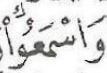 وَاسْمَعُواْ